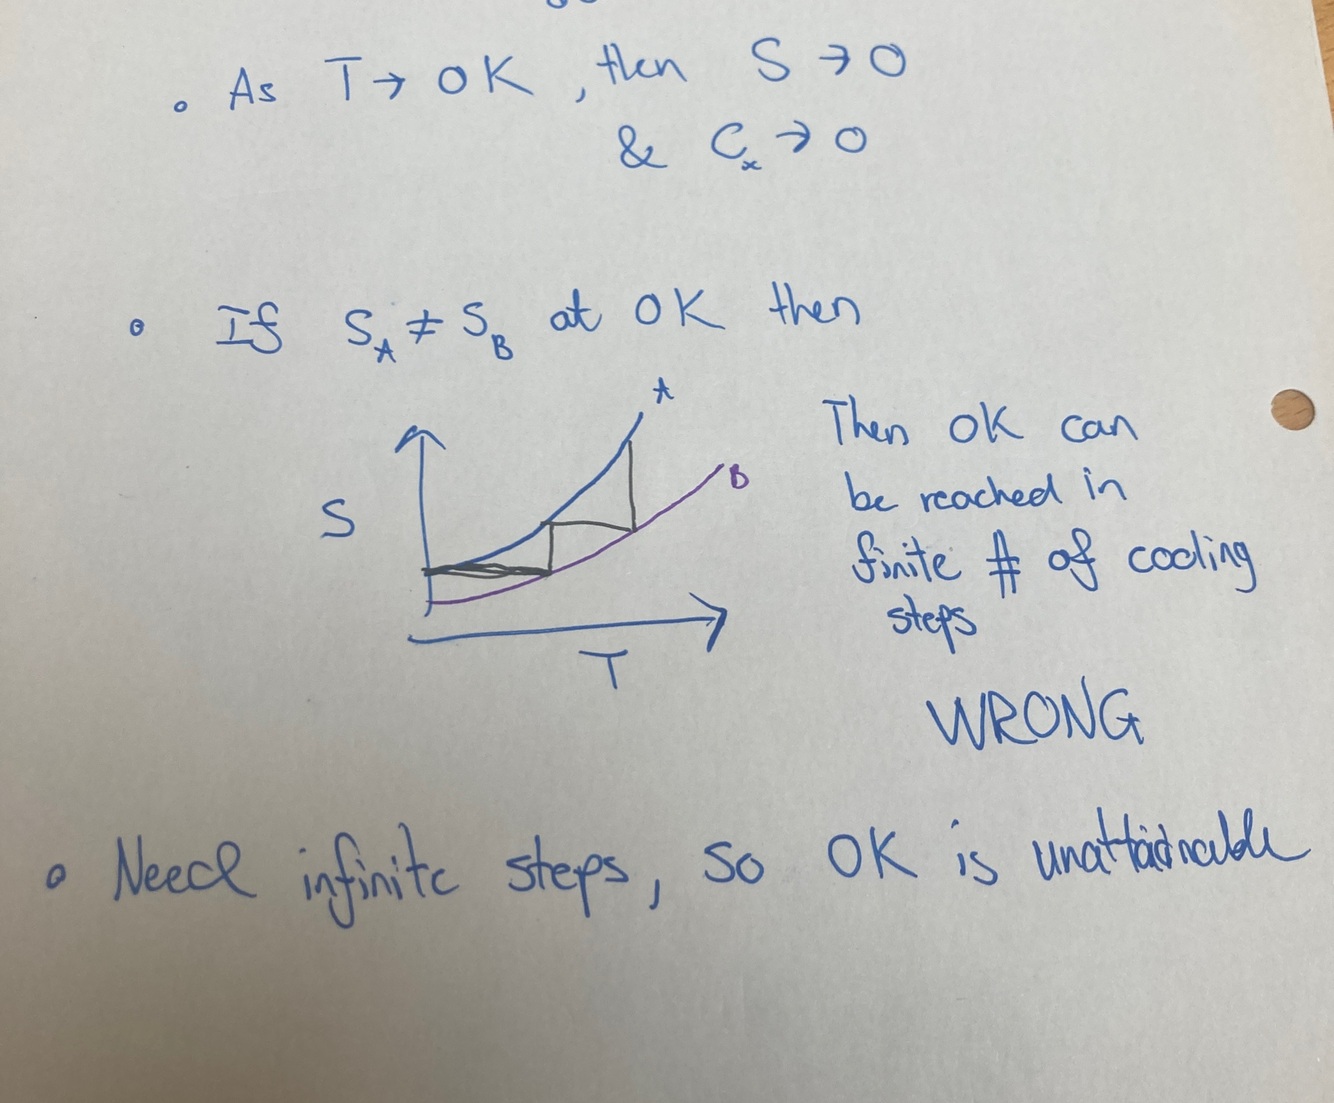 • As T → 0K, then S → 0
& Cₓ → 0
• If S_A ≠ S_B at 0K then
A
B
S
T
Then 0K can
be reached in
finite # of cooling
steps
WRONG
• Need infinite steps, so 0K is unattainable